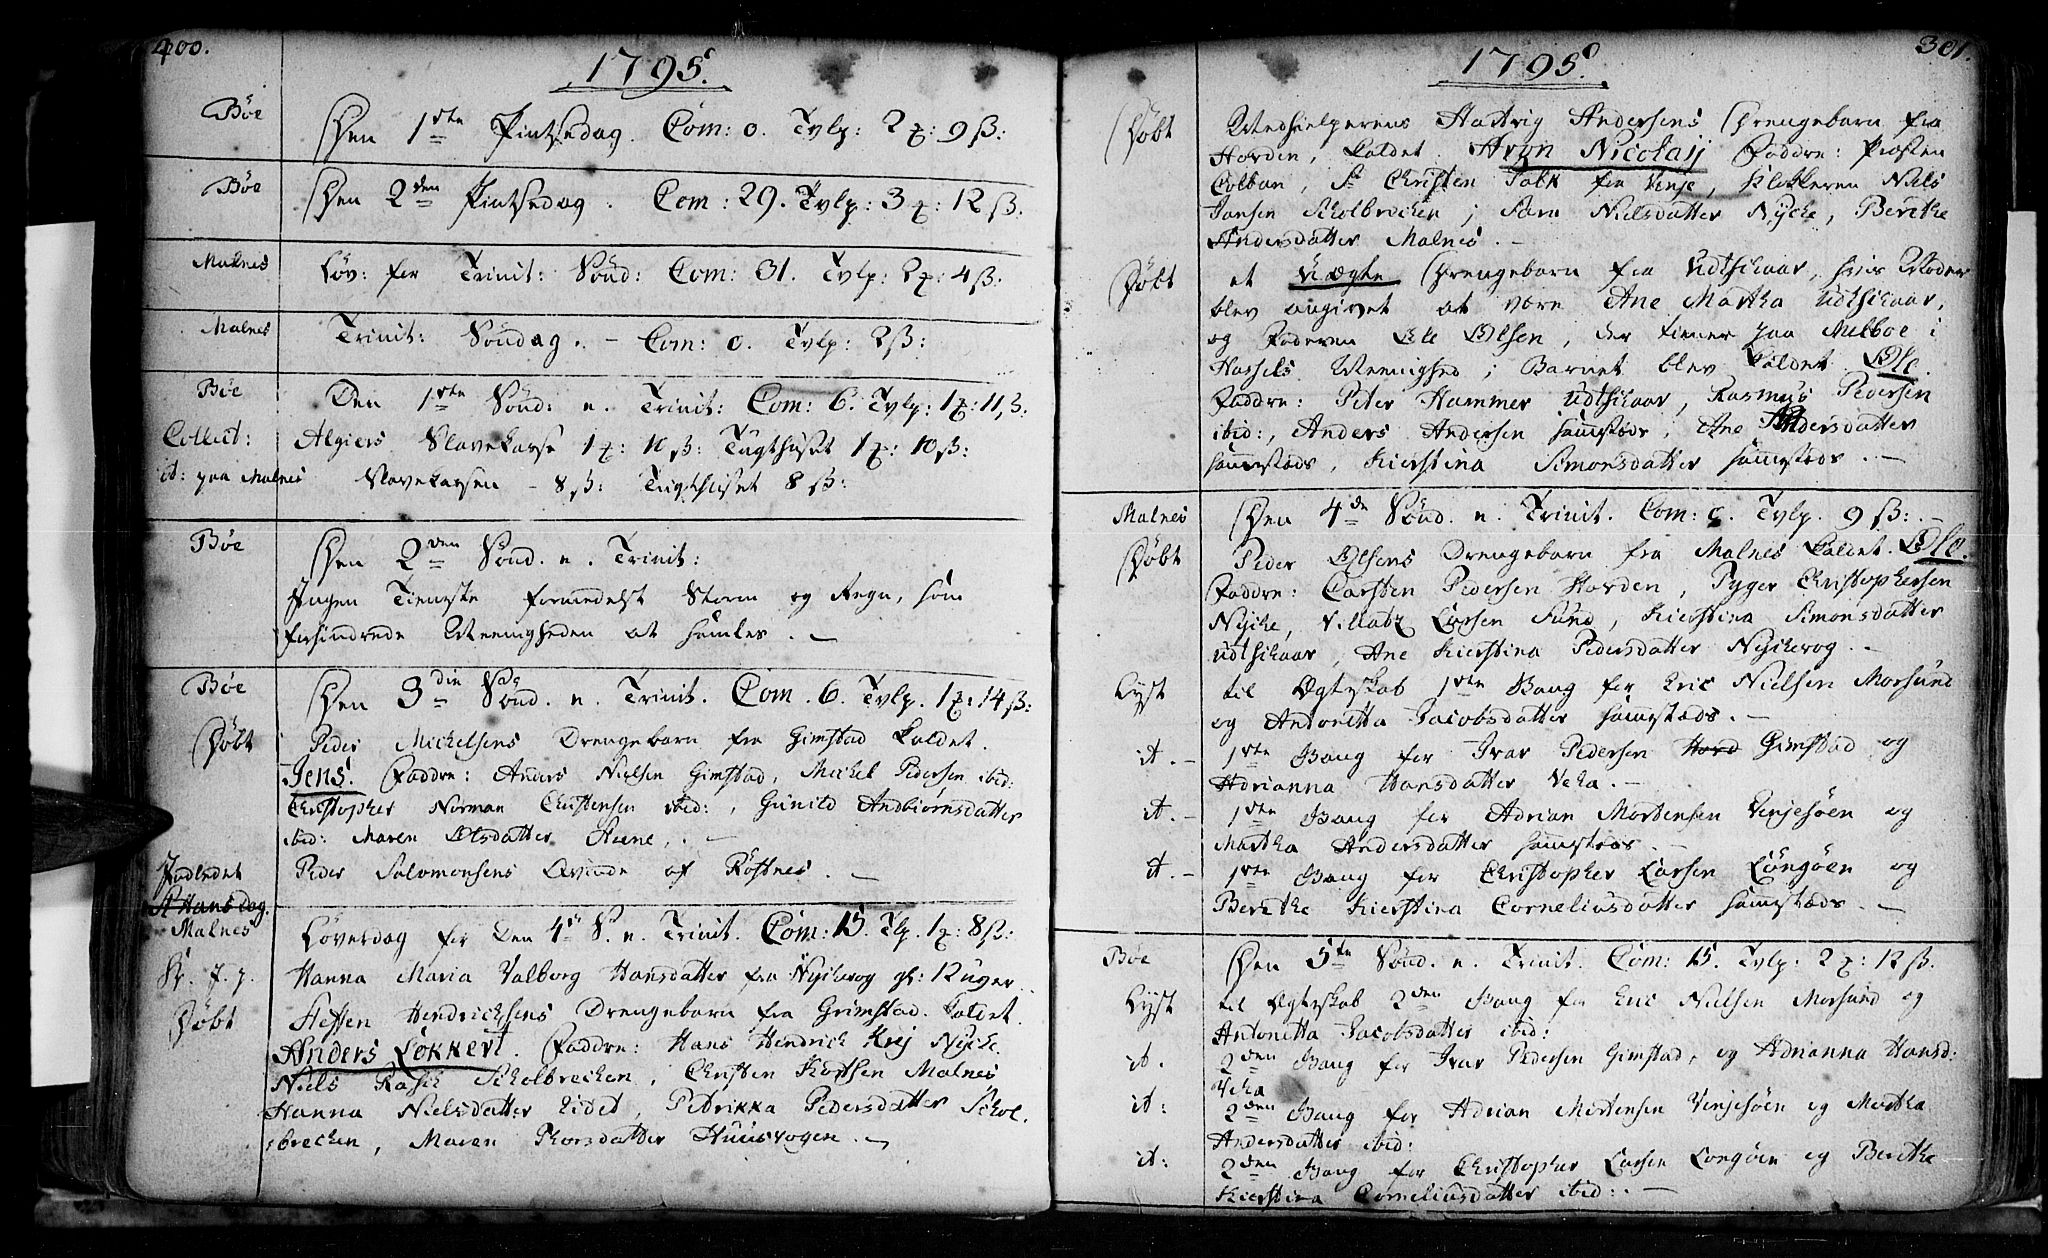 400.
1795.
Bøe
Den 1ste Pintsedag. Com: 0. Tvlp: 2 : 9 ß:
Bøe
Den 2den Pintsedag. Com: 29. Tvlp: 3 : 12 ß:
Malnes
Løv: før Trinit: Sönd: Com: 31. Tvlp: 2 : 4 ß:
Malnes
Trinit: Söndag. - Com: 0. Tvlp: 2 ß:
Bøe
Den 1ste Sönd: n. Trinit: Com: 6. Tvlp: 1 : 11 ß.
Collect:
Algiers Slavekasse 1 : 10 ß: Tugthuset 1 : 10 ß:
it: paa Malnes
Slavekassen - 8 ß: Tugthuset 8 ß:
Bøe
Den 2den Sönd. n. Trinit:
Ingen Tieneste formedelst Storm og Regn, som
forhindrede Menigheden at samles. -
Bøe
Den 3die Sönd. n. Trinit. Com. 6. Tvlp. 1 : 14 ß:
Döbt
Peder Michelsens Drengebarn fra Gimstad kaldet.
Jens. Faddre: Anders Nielsen Gimstad, Michel Pedersen ibid:
Christopher Norman Christensen ibid:, Gunild Andbiørnsdatter
ibid: Maren Olsdatter Steene. -
Indledet
Peder Salomonsens Qvinde af Röstnes. -
St Hansdag.
Malnes
Løverdag før den 4de S. n. Trinit. Com: 15. Tlp. 1 : 8 ß:
Hanna Maria Valborg Hansdatter fra Nyckevog gl: 12 uger
Döbt
Steffen Hendricksens Drengebarn fra Grimstad kaldet.
Anders Løkkert. Faddre: Hans Hendrich Krej Nycke
Niels Rasch Skolbrecken, Christen Kortsen Malnes
Hanna Nielsdatter Eidet, Petrikka Pedersdatter Skol-
brecken, Maren Thorsdatter Huusvogen. -
301.
1795.
Döbt
Medhielperens Hartvig Andersens Drengebarn fra
Horden, kaldet Aron Nicolaij Faddre: Prosten
Colban, Sr Christen Falk fra Vinje, Klokkeren Niels
Jansen Skolbrecken; Sara Nielsdatter Nycke, Berethe
Andersdatter Malnes. -
Döbt
et Uægte Drengebarn fra Udtskaar, hvis Moder
blev angivet at være Ane Martha Udtskaar,
og Faderen Ole Olsen, der tiener paa Melboe i
Hassels Menighed; Barnet blev kaldet Ole.
Faddre: Peter Hammer Udtskaar, Rasmus Pedersen
ibid:, Anders Andersen samestæds, Ane Andersdatter
samestæds, Kierstina Simonsdatter samestæds. -
Malnes
Den 4de Sönd. n. Trinit. Com: 0. Tvlp. 9 ß: -
Döbt
Peder Olsens Drengebarn fra Malnes kaldet. Ole.
Faddre: Carsten Pedersen Horden, Pyger Christophersen
Nycke, Villatz Larsen Sund, Kierstina Simonsdatter
Udtskaar, Ane Kierstina Pedersdatter Nyckevog. -
Lyst
til Ægteskab 1ste Gang for Eric Nielsen Morsund
og Antonetta Jacobsdatter samestæds. -
it. -
1ste Gang for Ivar Pedersen Gimstad og
Adrianna Hansdatter Veka. -
it. -
1ste Gang for Adrian Mortensen Vinjesøen og
Martha Andersdatter samestæds. -
it. -
1ste Gang for Christopher Larsen Longöen og
Berethe Kierstina Corneliusdatter samestæds. -
Bøe
Den 5te Sönd. n. Trinit. Com: 15. Tvlp: 2 : 12 ß.
Lyst
til Ægteskab 2den Gang for Eric Nielsen Morsund og
Antonetta Jacobsdatter ibid:
it.
2den Gang for Ivar Pedersen Gimstad, og Adrianna Hansd:
Veka
it:
2den Gang for Adrian Mortensen Vinjesøen og Martha
Andersdatter ibid:
it:
2den Gang for Christopher Larsen Longöen og Berethe
Kierstina Corneliusdatter ibid: -